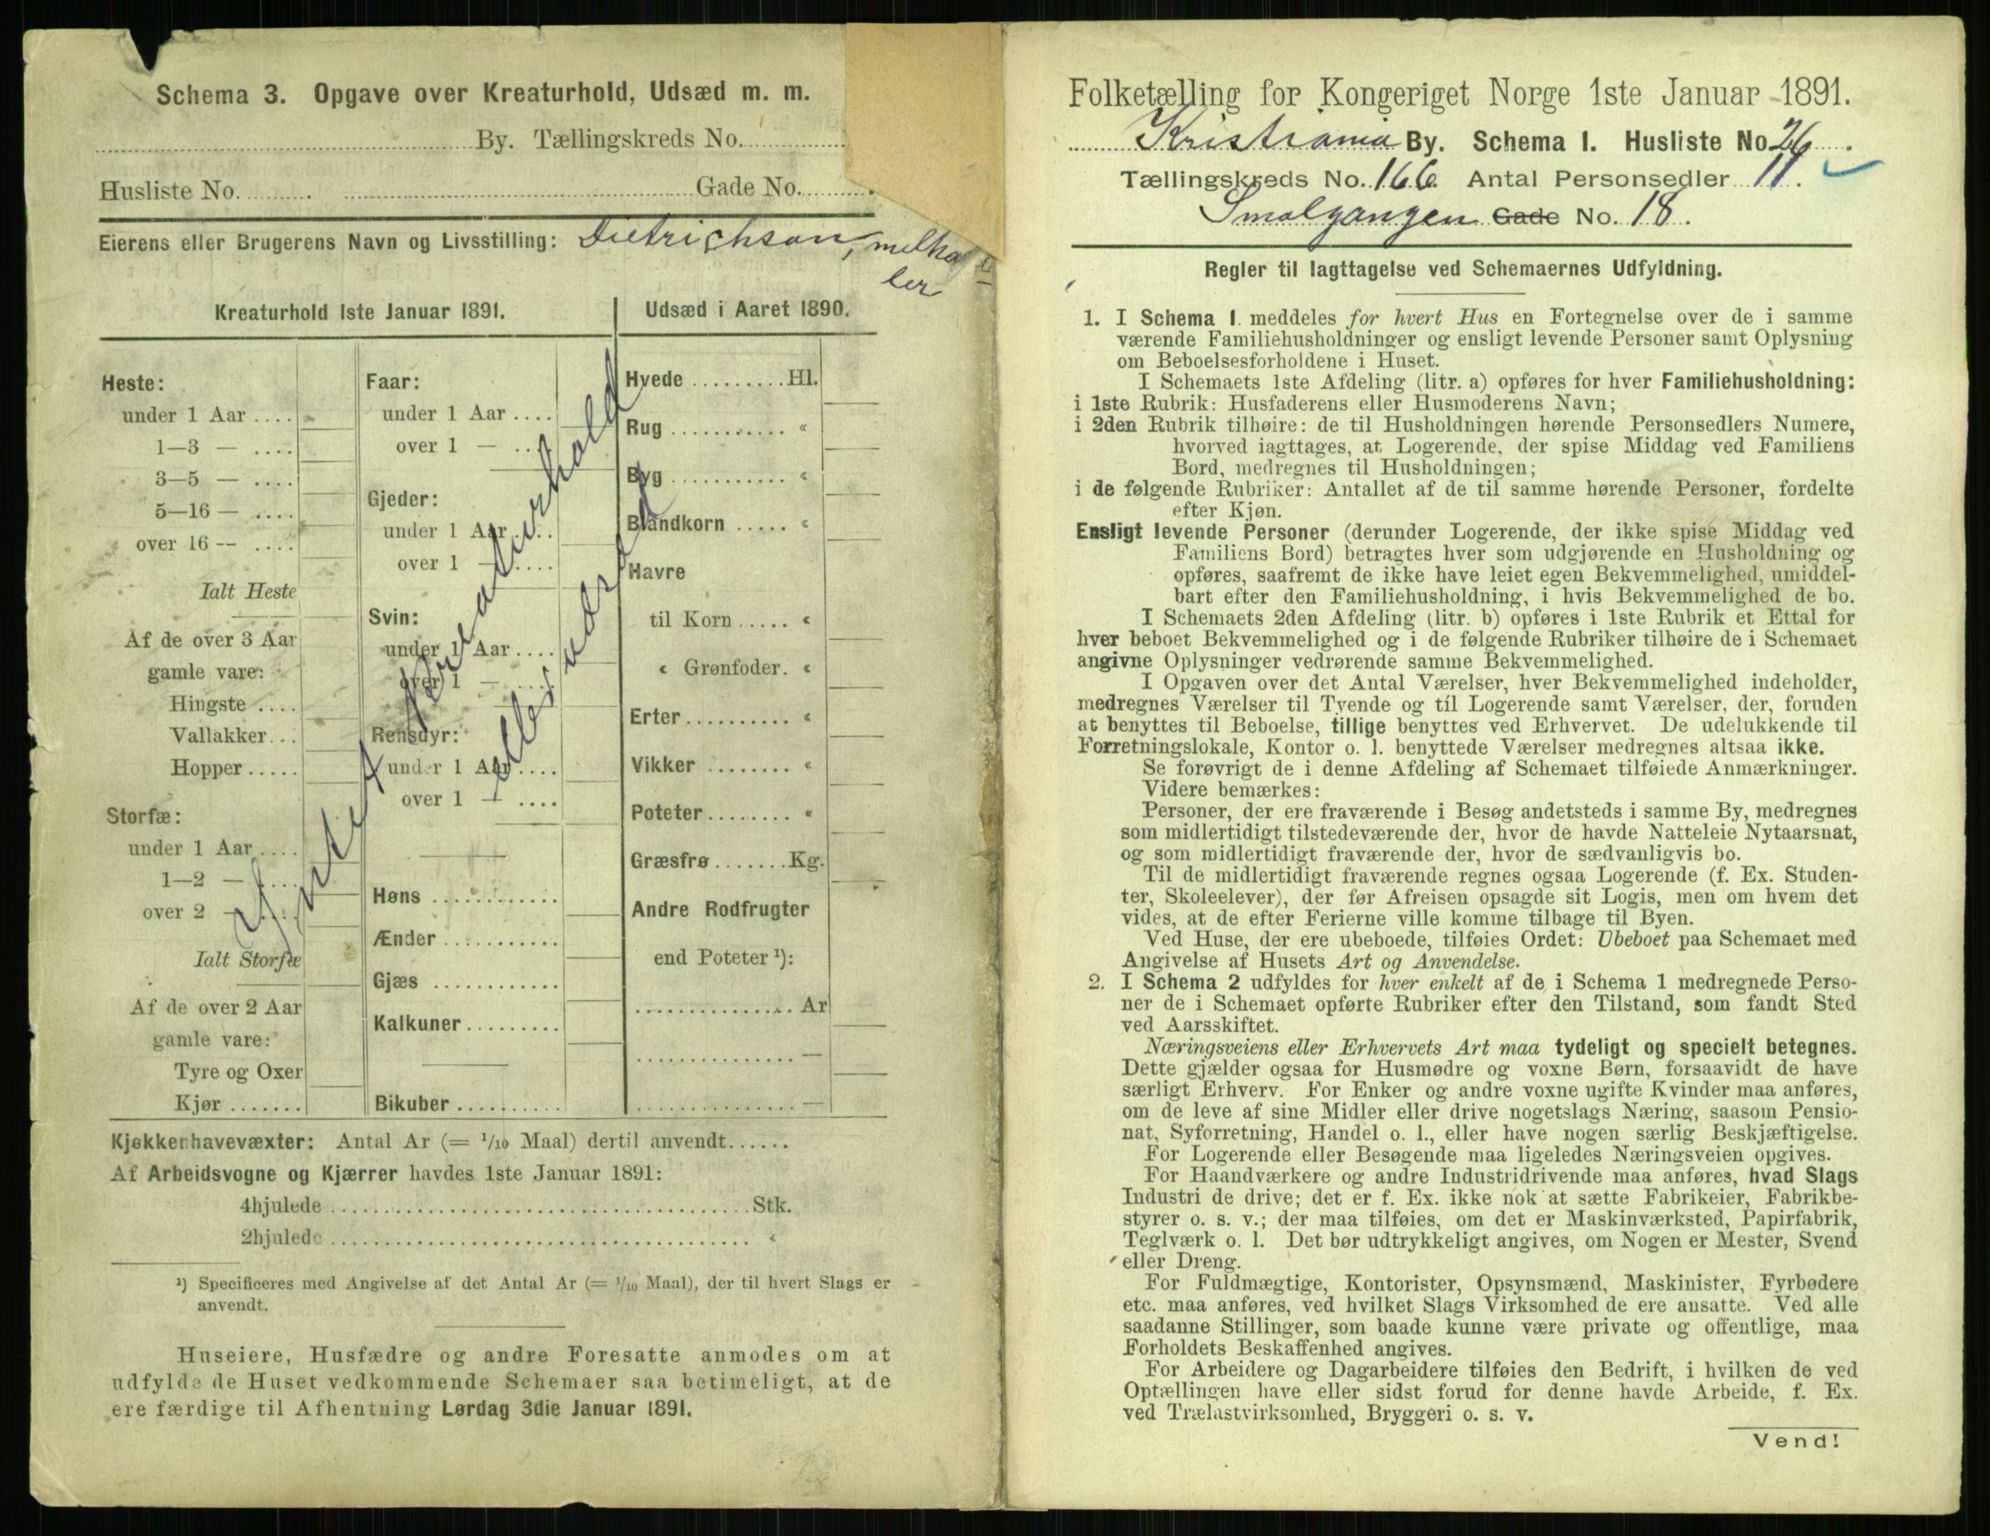 Schema 3. Opgave over Kreaturhold, Udsæd m. m.
By. Tællingskreds No.
Husliste No. Gade No.
Eierens eller Brugerens Navn og Livsstilling: Dietrichson,
Kreaturhold 1ste Januar 1891.
Heste:
under 1 Aar
1—3 —
3—5 —
5—16 —
over 16 —
Ialt Heste
Af de over 3 Aar
gamle vare:
Hingste
Vallakker
Hopper
Storfæ:
under 1 Aar
1—2 —
over 2 —
Ialt Storfæ
Af de over 2 Aar
gamle vare:
Tyre og Oxer
Kjør
Faar:
under 1 Aar
over 1 —
Gjeder:
under 1 Aar
over 1 —
Svin:
under 1 Aar
over 1 —
Rensdyr:
under 1 Aar
over 1 —
Høns
Ænder
Gjæs
Kalkuner
Bikuber
Intet Kreaturhold
eller udsæd
Udsæd i Aaret 1890.
Hvede Hl.
Rug «
Byg «
Blandkorn «
Havre
til Korn «
« Grønfoder. «
Erter «
Vikker «
Poteter «
Græsfrø Kg.
Andre Rodfrugter
end Poteter ¹):
Ar
—
—
Kjøkkenhavevæxter: Antal Ar (= 1/10 Maal) dertil anvendt
Af Arbeidsvogne og Kjærrer havdes 1ste Januar 1891:
4hjulede Stk.
2hjulede «
¹) Specificeres med Angivelse af det Antal Ar (= 1/10 Maal), der til hvert Slags er
anvendt.
Huseiere, Husfædre og andre Foresatte anmodes om at
udfylde de Huset vedkommende Schemaer saa betimeligt, at de
ere færdige til Afhentning Lørdag 3die Januar 1891.
Folketælling for Kongeriget Norge 1ste Januar 1891.
Kristiania By. Schema I. Husliste No. 26.
Tællingskreds No. 166. Antal Personsedler 11.
Smalgangen Gade No. 18.
Regler til Iagttagelse ved Schemaernes Udfyldning.
1. I Schema 1. meddeles for hvert Hus en Fortegnelse over de i samme
værende Familiehusholdninger og ensligt levende Personer samt Oplysning
om Beboelsesforholdene i Huset.
I Schemaets 1ste Afdeling (litr. a) opføres for hver Familiehusholdning:
i 1ste Rubrik: Husfaderens eller Husmoderens Navn;
i 2den Rubrik tilhøire: de til Husholdningen hørende Personsedlers Numere,
hvorved iagttages, at Logerende, der spise Middag ved Familiens
Bord, medregnes til Husholdningen;
i de følgende Rubriker: Antallet af de til samme hørende Personer, fordelte
efter Kjøn.
Ensligt levende Personer (derunder Logerende, der ikke spise Middag ved
Familiens Bord) betragtes hver som udgjørende en Husholdning og
opføres, saafremt de ikke have leiet egen Bekvemmelighed, umiddel-
bart efter den Familiehusholdning, i hvis Bekvemmelighed de bo.
I Schemaets 2den Afdeling (litr. b) opføres i 1ste Rubrik et Ettal for
hver beboet Bekvemmelighed og i de følgende Rubriker tilhøire de i Schemaet
angivne Oplysninger vedrørende samme Bekvemmelighed.
I Opgaven over det Antal Værelser, hver Bekvemmelighed indeholder,
medregnes Værelser til Tyende og til Logerende samt Værelser, der, foruden
at benyttes til Beboelse, tillige benyttes ved Erhvervet. De udelukkende til
Forretningslokale, Kontor o. l. benyttede Værelser medregnes altsaa ikke.
Se forøvrigt de i denne Afdeling af Schemaet tilføiede Anmærkninger.
Videre bemærkes:
Personer, der ere fraværende i Besøg andetsteds i samme By, medregnes
som midlertidigt tilstedeværende der, hvor de havde Natteleie Nytaarsnat,
og som midlertidigt fraværende der, hvor de sædvanligvis bo.
Til de midlertidigt fraværende regnes ogsaa Logerende (f. Ex. Studen-
ter, Skoleelever), der før Afreisen opsagde sit Logis, men om hvem det
vides, at de efter Ferierne ville komme tilbage til Byen.
Ved Huse, der ere ubeboede, tilføies Ordet: Ubeboet paa Schemaet med
Angivelse af Husets Art og Anvendelse.
2. I Schema 2 udfyldes for hver enkelt af de i Schema 1 medregnede Perso-
ner de i Schemaet opførte Rubriker efter den Tilstand, som fandt Sted
ved Aarsskiftet.
Næringsveiens eller Erhvervets Art maa tydeligt og specielt betegnes.
Dette gjælder ogsaa for Husmødre og voxne Børn, forsaavidt de have
særligt Erhverv. For Enker og andre voxne ugifte Kvinder maa anføres,
om de leve af sine Midler eller drive nogetslags Næring, saasom Pensio-
nat, Syforretning, Handel o. l., eller have nogen særlig Beskjæftigelse.
For Logerende eller Besøgende maa ligeledes Næringsveien opgives.
For Haandværkere og andre Industridrivende maa anføres, hvad Slags
Industri de drive; det er f. Ex. ikke nok at sætte Fabrikeier, Fabrikbe-
styrer o. s. v.; der maa tilføies, om det er Maskinværksted, Papirfabrik,
Teglværk o. l. Det bør udtrykkeligt angives, om Nogen er Mester, Svend
eller Dreng.
For Fuldmægtige, Kontorister, Opsynsmænd, Maskinister, Fyrbødere
etc. maa anføres, ved hvilket Slags Virksomhed de ere ansatte. Ved alle
saadanne Stillinger, som baade kunne være private og offentlige, maa
Forholdets Beskaffenhed angives.
For Arbeidere og Dagarbeidere tilføies den Bedrift, i hvilken de ved
Optællingen have eller sidst forud for denne havde Arbeide, f. Ex.
ved Trælastvirksomhed, Bryggeri o. s. v.
Vend!